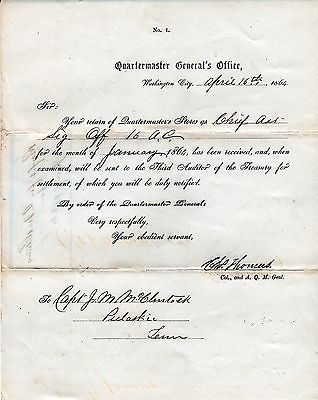 No. 1.
Quartermaster General's Office,
Washington City, April 16th, 1864
Sir:
Your return of Quartermaster's Stores as Chief Act
Sig Off 16 A.C
for the month of January, 1864, has been received, and, when
examined, will be sent to the Third Auditor of the Treasury for
settlement, of which you will be duly notified.
By order of the Quartermaster General:
Very respectfully,
Your obedient servant,
Chs. Thomas
Col., and A. Q. M. Genl.
To Capt J. M. McClintock
Pulaski
Tenn